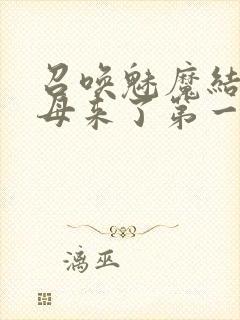 召唤魅魔結
母来了第一
漓巫